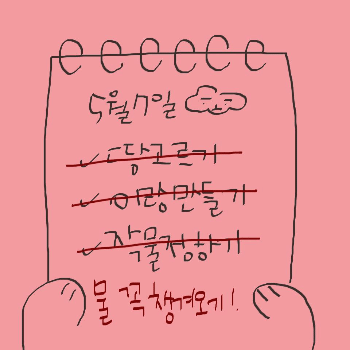 5월 7일
✓ 땅고르기
✓ 이랑만들기
✓ 작물정하기
물 꼭 챙겨오기!